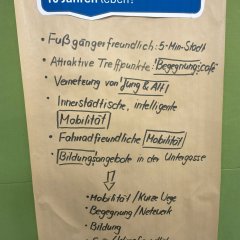 10 Jahren leben?
• Fußgängerfreundlich: 5-Min-Stadt
• Attraktive Treffpunkte: "Begegnungscafé"
• Vernetzung von "Jung & Alt"
• Innerstädtische, intelligente
Mobilität
• Fahrradfreundliche Mobilität
• Bildungsangebote in der Untergasse
• Mobilität / Kurze Wege
• Begegnung / Netzwerk
• Bildung